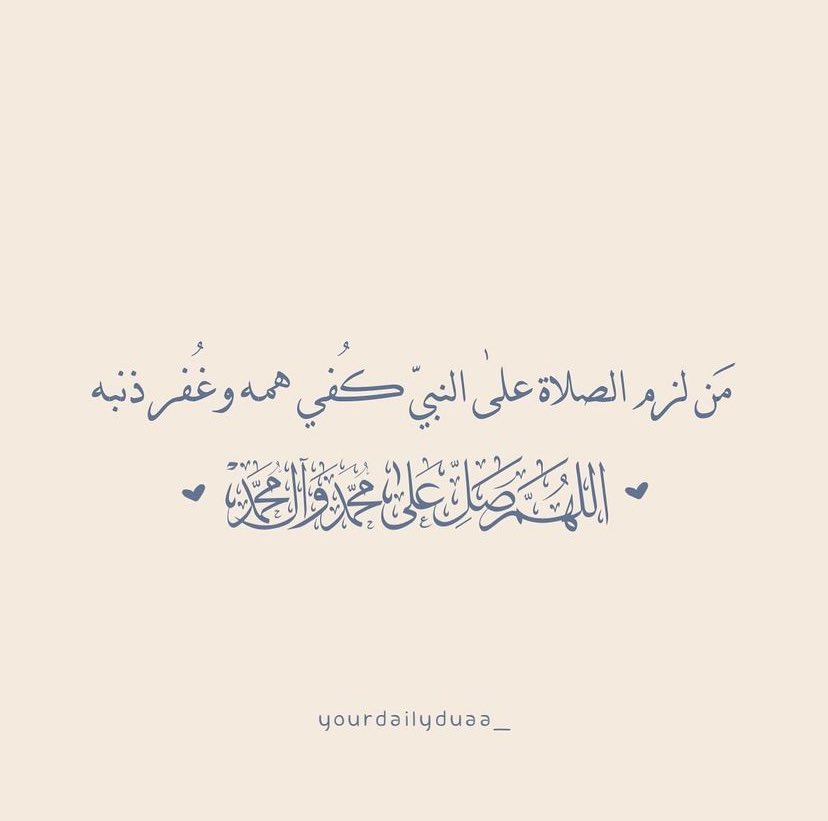 مَن لزم الصلاة علىٰ النبيّ كُفي همه وغُفر ذنبه
اللهُمَّ صَلِّ عَلىٰ مُحمَّد وَآل مُحمَّد
yourdailyduaa_